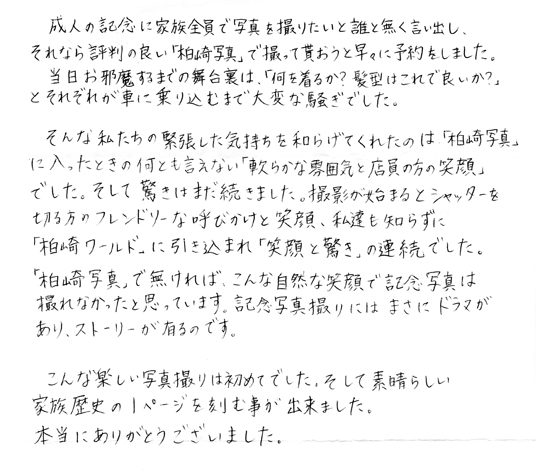 成人の記念に家族全員で写真を撮りたいと誰と無く言い出し、
それなら評判の良い「柏崎写真」で撮って貰おうと早々に予約をしました。
当日お邪魔するまでの舞台裏は、「何を着るか?髪型はこれで良いか?」
とそれぞれが車に乗り込むまで大変な騒ぎでした。
そんな私たちの緊張した気持ちを和らげてくれたのは「柏崎写真」
に入ったときの何とも言えない「軟らかな雰囲気と店員の方の笑顔」
でした。そして驚きはまだ続きました。撮影が始まるとシャッターを
切る方のフレンドリーな呼びかけと笑顔、私達も知らずに
「柏崎ワールド」に引き込まれ「笑顔と驚き」の連続でした。
「柏崎写真」で無ければ、こんな自然な笑顔で記念写真は
撮れなかったと思っています。記念写真撮りにはまさにドラマが
あり、ストーリーが有るのです。
こんな楽しい写真撮りは初めてでした。そして素晴らしい
家族歴史の1ページを刻む事が出来ました。
本当にありがとうございました。